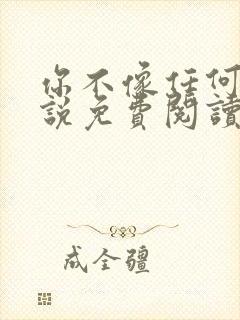 你不像任何
說免費閱讀
成全疆